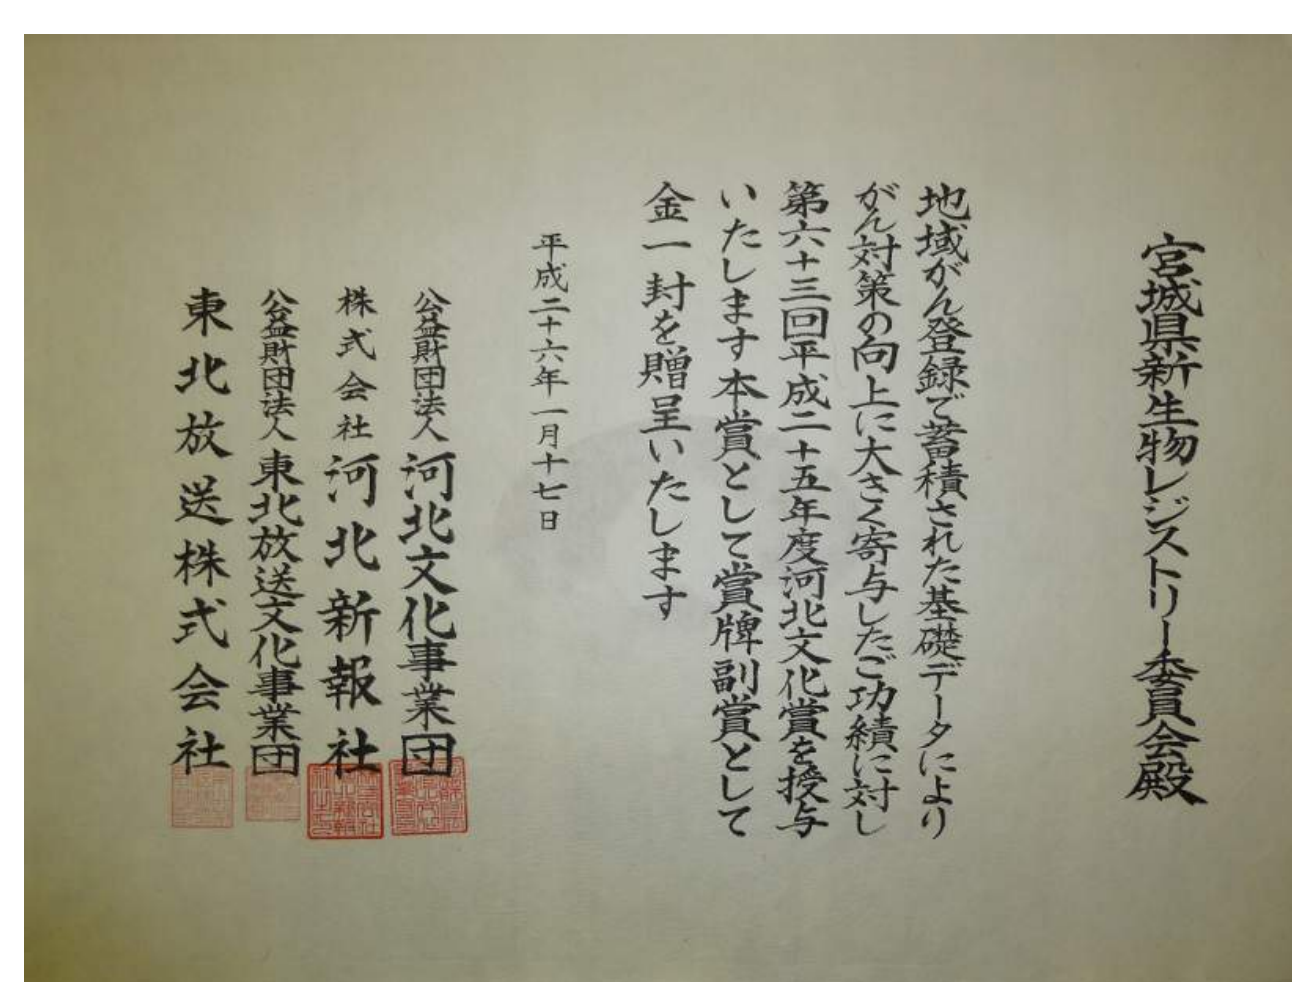 宮城県新生物レジストリー委員会殿
地域がん登録で蓄積された基礎データにより
がん対策の向上に大きく寄与したご功績に対し
第六十三回平成二十五年度河北文化賞を授与
いたします本賞として賞牌副賞として
金一封を贈呈いたします
平成二十六年一月十七日
公益財団法人河北文化事業団
株式会社河北新報社
公益財団法人東北放送文化事業団
東北放送株式会社